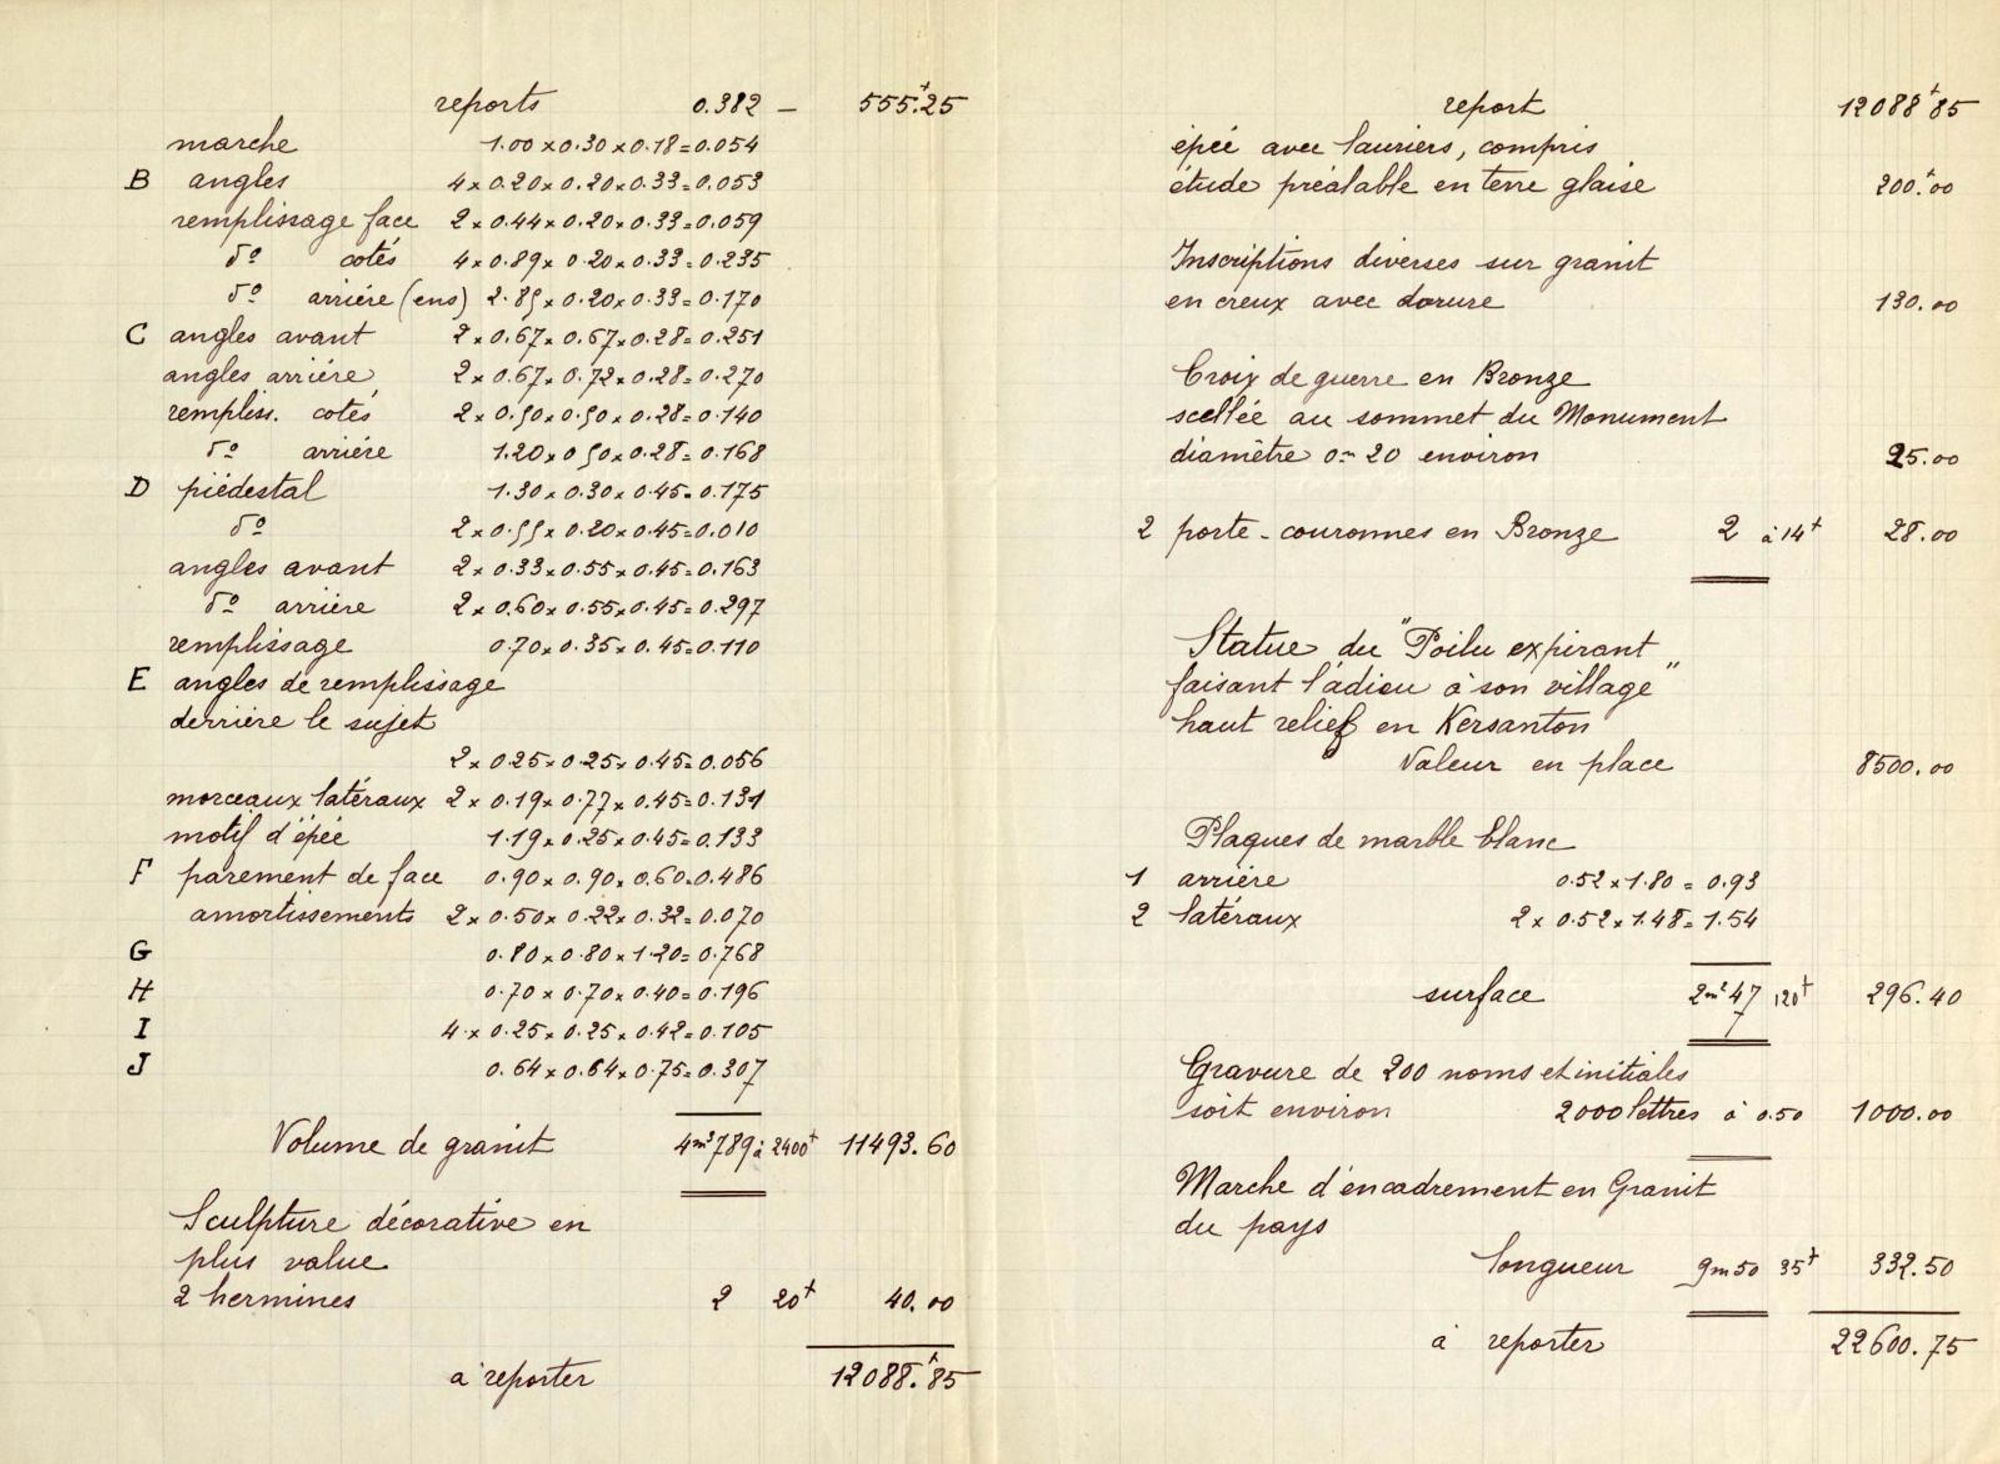 reports 0.382 — 555.f25
marche 1.00 x 0.30 x 0.18 = 0.054
B angles 4 x 0.20 x 0.20 x 0.33 = 0.053
remplissage face 2 x 0.44 x 0.20 x 0.33 = 0.059
do cotés 4 x 0.89 x 0.20 x 0.33 = 0.235
do arriére (ens) 2.85 x 0.20 x 0.33 = 0.170
C angles avant 2 x 0.67 x 0.67 x 0.28 = 0.251
angles arriére 2 x 0.67 x 0.72 x 0.28 = 0.270
rempliss. cotés 2 x 0.50 x 0.50 x 0.28 = 0.140
do arriére 1.20 x 0.50 x 0.28 = 0.168
D piédestal 1.30 x 0.30 x 0.45 = 0.175
do 2 x 0.55 x 0.20 x 0.45 = 0.010
angles avant 2 x 0.33 x 0.55 x 0.45 = 0.163
do arriere 2 x 0.60 x 0.55 x 0.45 = 0.297
remplissage 0.70 x 0.35 x 0.45 = 0.110
E angles de remplissage
derriére le sujet
2 x 0.25 x 0.25 x 0.45 = 0.056
morceaux latéraux 2 x 0.19 x 0.77 x 0.45 = 0.131
motif d'épée 1.19 x 0.25 x 0.45 = 0.133
F parement de face 0.90 x 0.90 x 0.60 = 0.486
amortissements 2 x 0.50 x 0.22 x 0.32 = 0.070
G 0.80 x 0.80 x 1.20 = 0.768
H 0.70 x 0.70 x 0.40 = 0.196
I 4 x 0.25 x 0.25 x 0.42 = 0.105
J 0.64 x 0.64 x 0.75 = 0.307
Volume de granit 4m³789 à 2400f 11493.60
Sculpture décorative en
plus value
2 hermines 2 20f 40.00
a reporter 12088.f85
report 12088f85
épée avec lauriers, compris
étude préalable en terre glaise 200.f00
Inscriptions diverses sur granit
en creux avec dorure 130.00
Croix de guerre en Bronze
scellée au sommet du Monument
diamêtre 0m20 environ 25.00
2 porte-couronnes en Bronze 2 à 14f 28.00
Statue du "Poilu expirant
faisant l'adieu à son village"
haut relief en Kersanton
Valeur en place 8500.00
Plaques de marble blanc
1 arriére 0.52 x 1.80 = 0.93
2 latéraux 2 x 0.52 x 1.48 = 1.54
surface 2m²47 120f 296.40
Gravure de 200 noms et initiales
soit environ 2000 lettres à 0.50 1000.00
Marche d'encadrement en Granit
du pays
longueur 9m50 35f 332.50
à reporter 22600.75